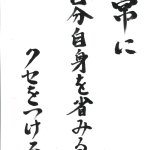 常に
自分自身を省みる
クセをつける